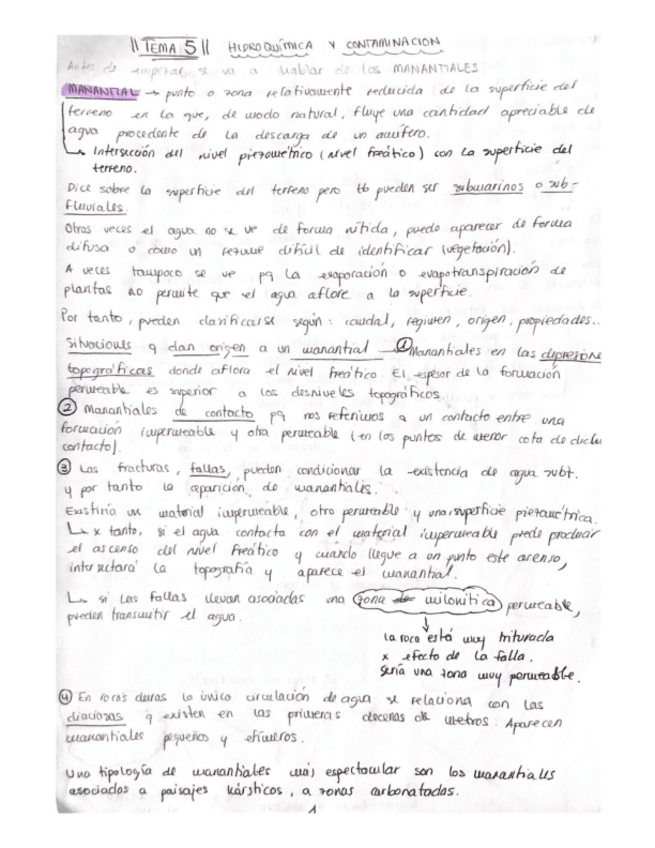 || TEMA 5 || HIDROQUÍMICA Y CONTAMINACION
Antes de empezar se va a hablar de los MANANTIALES
MANANTIAL → punto o zona relativamente reducida de la superficie del
terreno en la que, de modo natural, fluye una cantidad apreciable de
agua procedente de la descarga de un acuífero.
↳ Intersección del nivel piezométrico (nivel freático) con la superficie del
terreno.
Dice sobre la superficie del terreno pero tb pueden ser submarinos o sub-
fluviales.
Otras veces el agua no se ve de forma nítida, puede aparecer de forma
difusa o como un rezume difícil de identificar (vegetación).
A veces tampoco se ve pq la evaporación o evapotranspiración de
plantas no permite que el agua aflore a la superficie.
Por tanto, pueden clasificarse según: caudal, regimen, origen, propiedades..
Situaciones q dan origen a un manantial → ① Manantiales en las depresione
topográficas donde aflora el nivel freático. El espesor de la formación
permeable es superior a los desniveles topográficos.
② Manantiales de contacto pq nos referimos a un contacto entre una
formación impermeable y otra permeable (en los puntos de menor cota de dicho
contacto).
③ Las fracturas, fallas, pueden condicionar la existencia de agua subt.
y por tanto la aparición de manantiales.
Existiría un material impermeable, otro permeable y una superficie piezométrica.
↳ x tanto, si el agua contacta con el material impermeable puede producir
el ascenso del nivel freático y cuando llegue a un punto este ascenso,
intersectará la topografía y aparece el manantial.
↳ si las fallas llevan asociadas una zona milonítica permeable,
pueden transmitir el agua.
la roca está muy triturada
x efecto de la falla.
Sería una zona muy permeable.
④ En rocas duras la única circulación de agua se relaciona con las
diaclasas q existen en las primeras decenas de metros. Aparecen
manantiales pequeños y efímeros.
Una tipología de manantiales más espectacular son los manantiales
asociados a paisajes kársticos, a zonas carbonatadas.
1